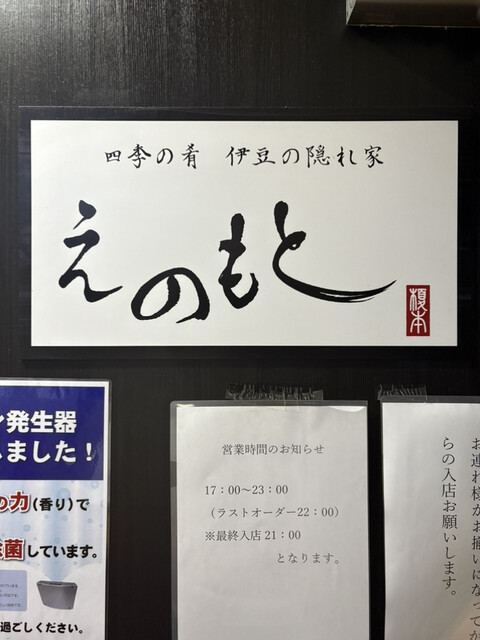 四季の肴 伊豆の隠れ家
えのもと
榎本
発生器
しました！
の力(香り)で
菌しています。
過ごしください。
営業時間のお知らせ
17：00～23：00
（ラストオーダー22：00）
※最終入店 21：00
となります。
お連れ様がお揃いになってか
らの入店お願いします。